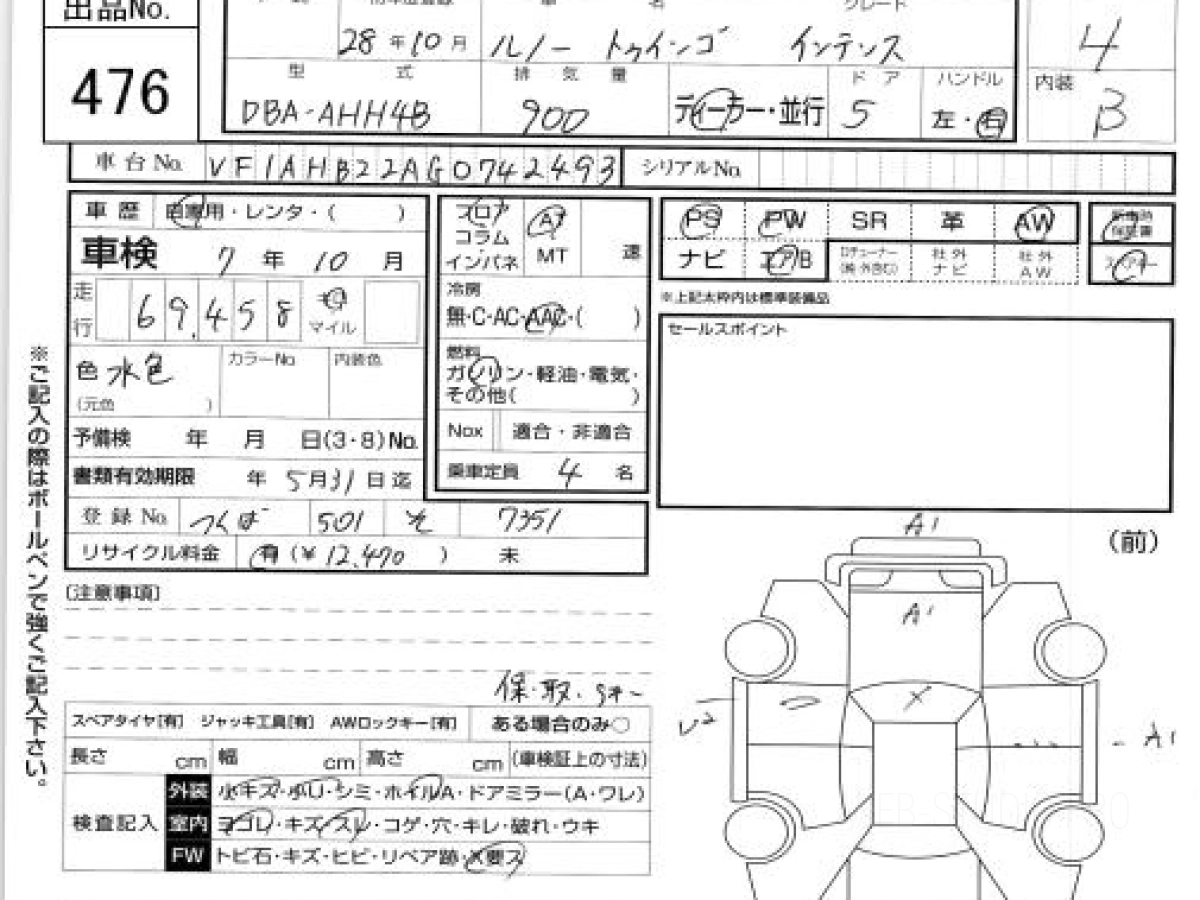 出品No.
476
28年10月 ルノー トゥインゴ インテンス 4
型式 排気量 ドア ハンドル 内装
DBA-AHH4B 900 ディーラー・並行 5 左・右 B
車台No. VF1AHB22AG0742493 シリアルNo.
車歴 自家用・レンタ・( )
車検 7年10月
走行 69,458 km マイル
色 水色 カラーNo. 内装色
(元色 )
予備検 年 月 日(3・8)No.
書類有効期限 年 5月31日迄
登録No. つくば 501 そ 7351
リサイクル料金 有 (¥12,470 ) 未
フロア
コラム
インパネ
AT
MT 速
冷房
無・C・AC・AAC・( )
燃料
ガソリン・軽油・電気・
その他( )
Nox 適合・非適合
乗車定員 4 名
PS PW SR 革 AW 新車時保証書
ナビ エアB 社外ナビ 社外AW スペアキー
※上記太枠内は標準装備品
セールスポイント
※ご記入の際はボールペンで強くご記入下さい。
〔注意事項〕
保.取.Sキー
スペアタイヤ[有] ジャッキ工具[有] AWロックキー[有] ある場合のみ○
長さ cm 幅 cm 高さ cm (車検証上の寸法)
検査記入
外装 小キズ・小U・シミ・ホイルA・ドアミラー(A・ワレ)
室内 ヨゴレ・キズ・スレ・コゲ・穴・キレ・破れ・ウキ
FW トビ石・キズ・ヒビ・リペア跡・X要ス
(前)
A1
A1
X
U2
A1